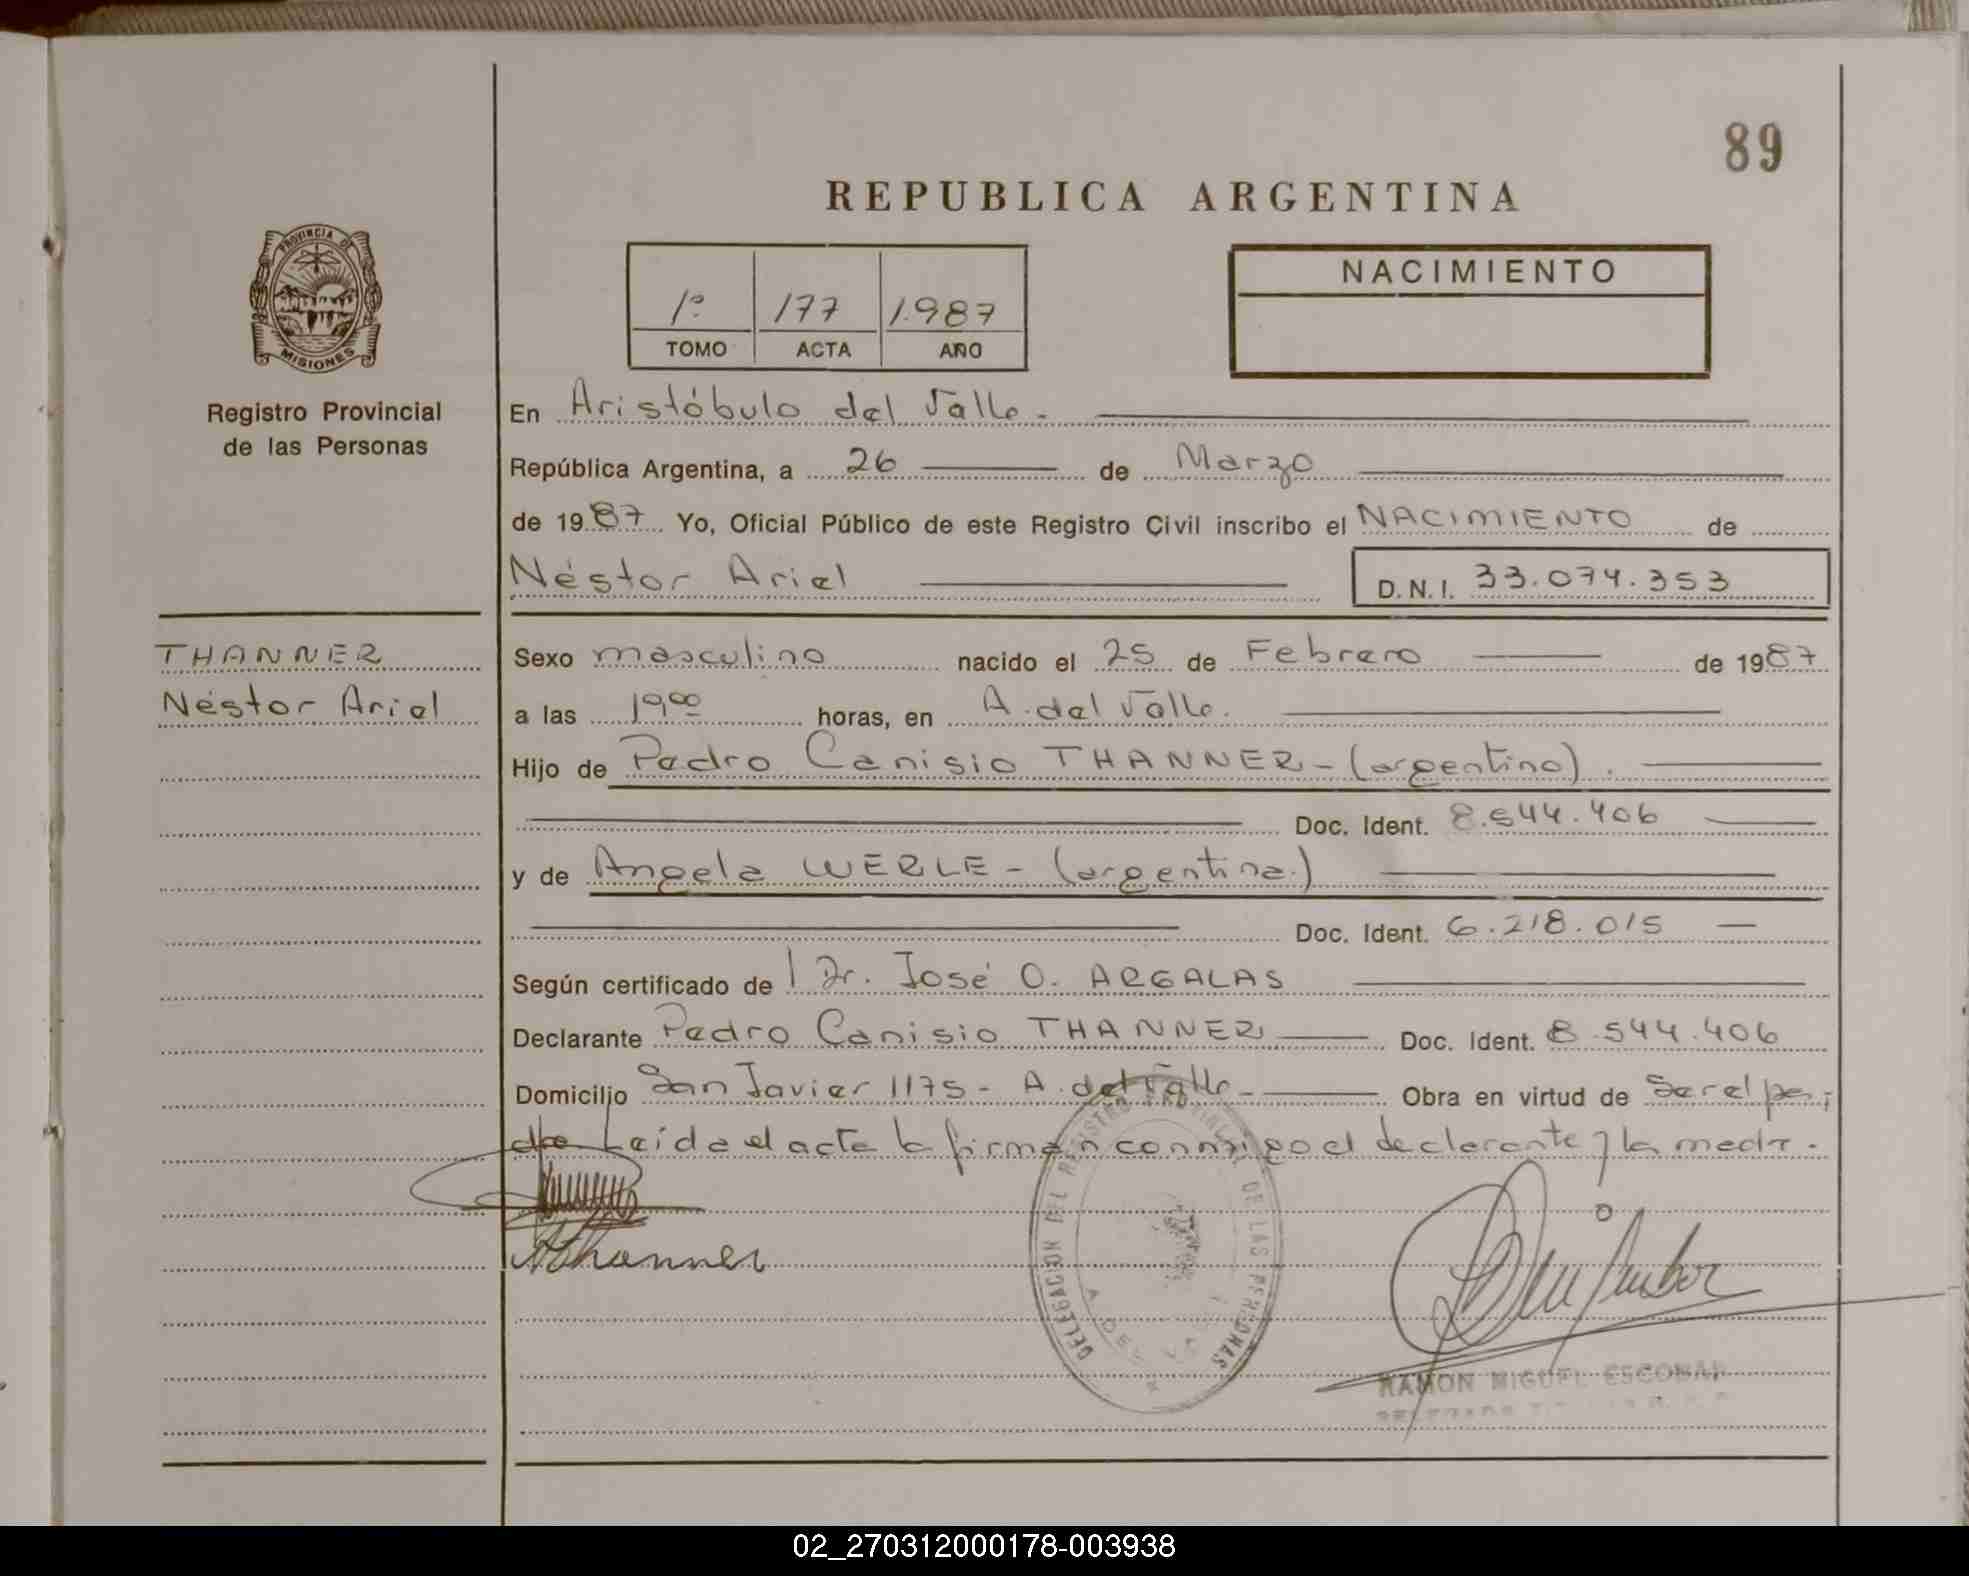 89
REPUBLICA ARGENTINA
PROVINCIA DE
MISIONES
Registro Provincial
de las Personas
1º 177 1.987
TOMO ACTA AÑO
NACIMIENTO
En Aristóbulo del Valle.-
República Argentina, a 26 de Marzo
de 1987 Yo, Oficial Público de este Registro Civil inscribo el NACIMIENTO de
Néstor Ariel D.N.I. 33.074.353
THANNER
Néstor Ariel
Sexo masculino nacido el 25 de Febrero de 1987
a las 19,00 horas, en A. del Valle.
Hijo de Pedro Canisio THANNER - (argentino).
Doc. Ident. 8.544.406
y de Angela WERLE - (argentina.)
Doc. Ident. 6.218.015
Según certificado de Dr. José O. ARGALAS
Declarante Pedro Canisio THANNER Doc. Ident. 8.544.406
Domicilio San Javier 1175 - A. del Valle - Obra en virtud de Ser el pa-
dre Leída el acta la firman conmigo el declarante y la madr.
Thanner
DELEGACION DEL REGISTRO PROVINCIAL DE LAS PERSONAS
A. DEL VALLE
RAMON MIGUEL ESCOBAR
DELEGADO
02_270312000178-003938